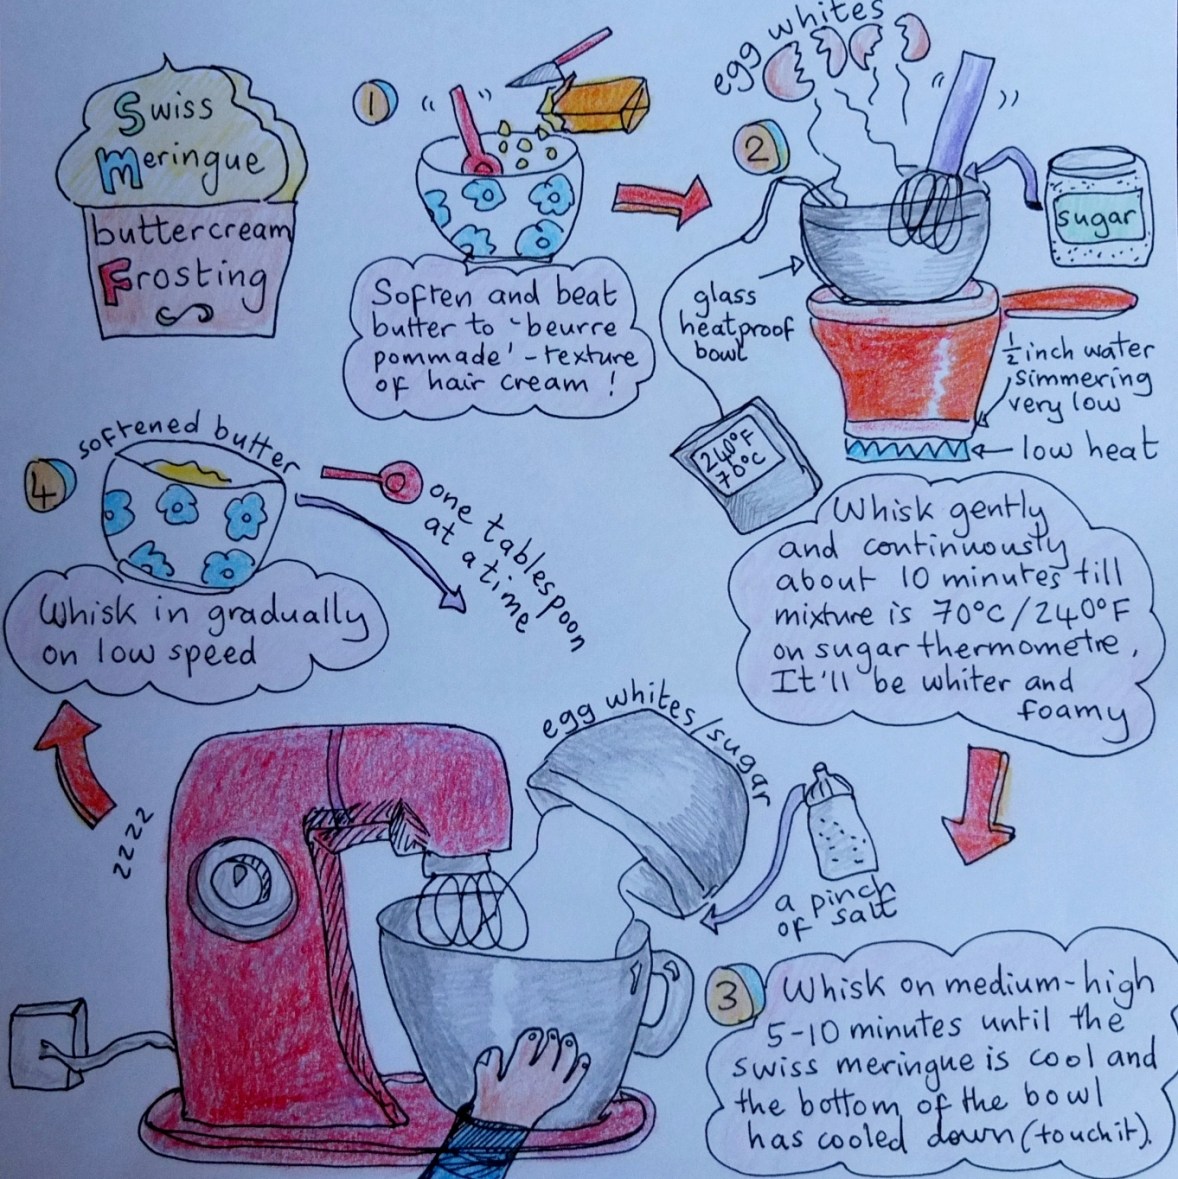 Swiss
Meringue
buttercream
Frosting
1
Soften and beat
butter to 'beurre
pommade' - texture
of hair cream !
egg whites
2
sugar
glass
heatproof
bowl
½ inch water
simmering
very low
low heat
240°F
70°C
Whisk gently
and continuously
about 10 minutes till
mixture is 70°C/240°F
on sugar thermometre,
It'll be whiter and
foamy
egg whites/sugar
a pinch
of salt
3
Whisk on medium-high
5-10 minutes until the
swiss meringue is cool and
the bottom of the bowl
has cooled down (touch it).
zzzz
4
softened butter
one tablespoon
at a time
Whisk in gradually
on low speed